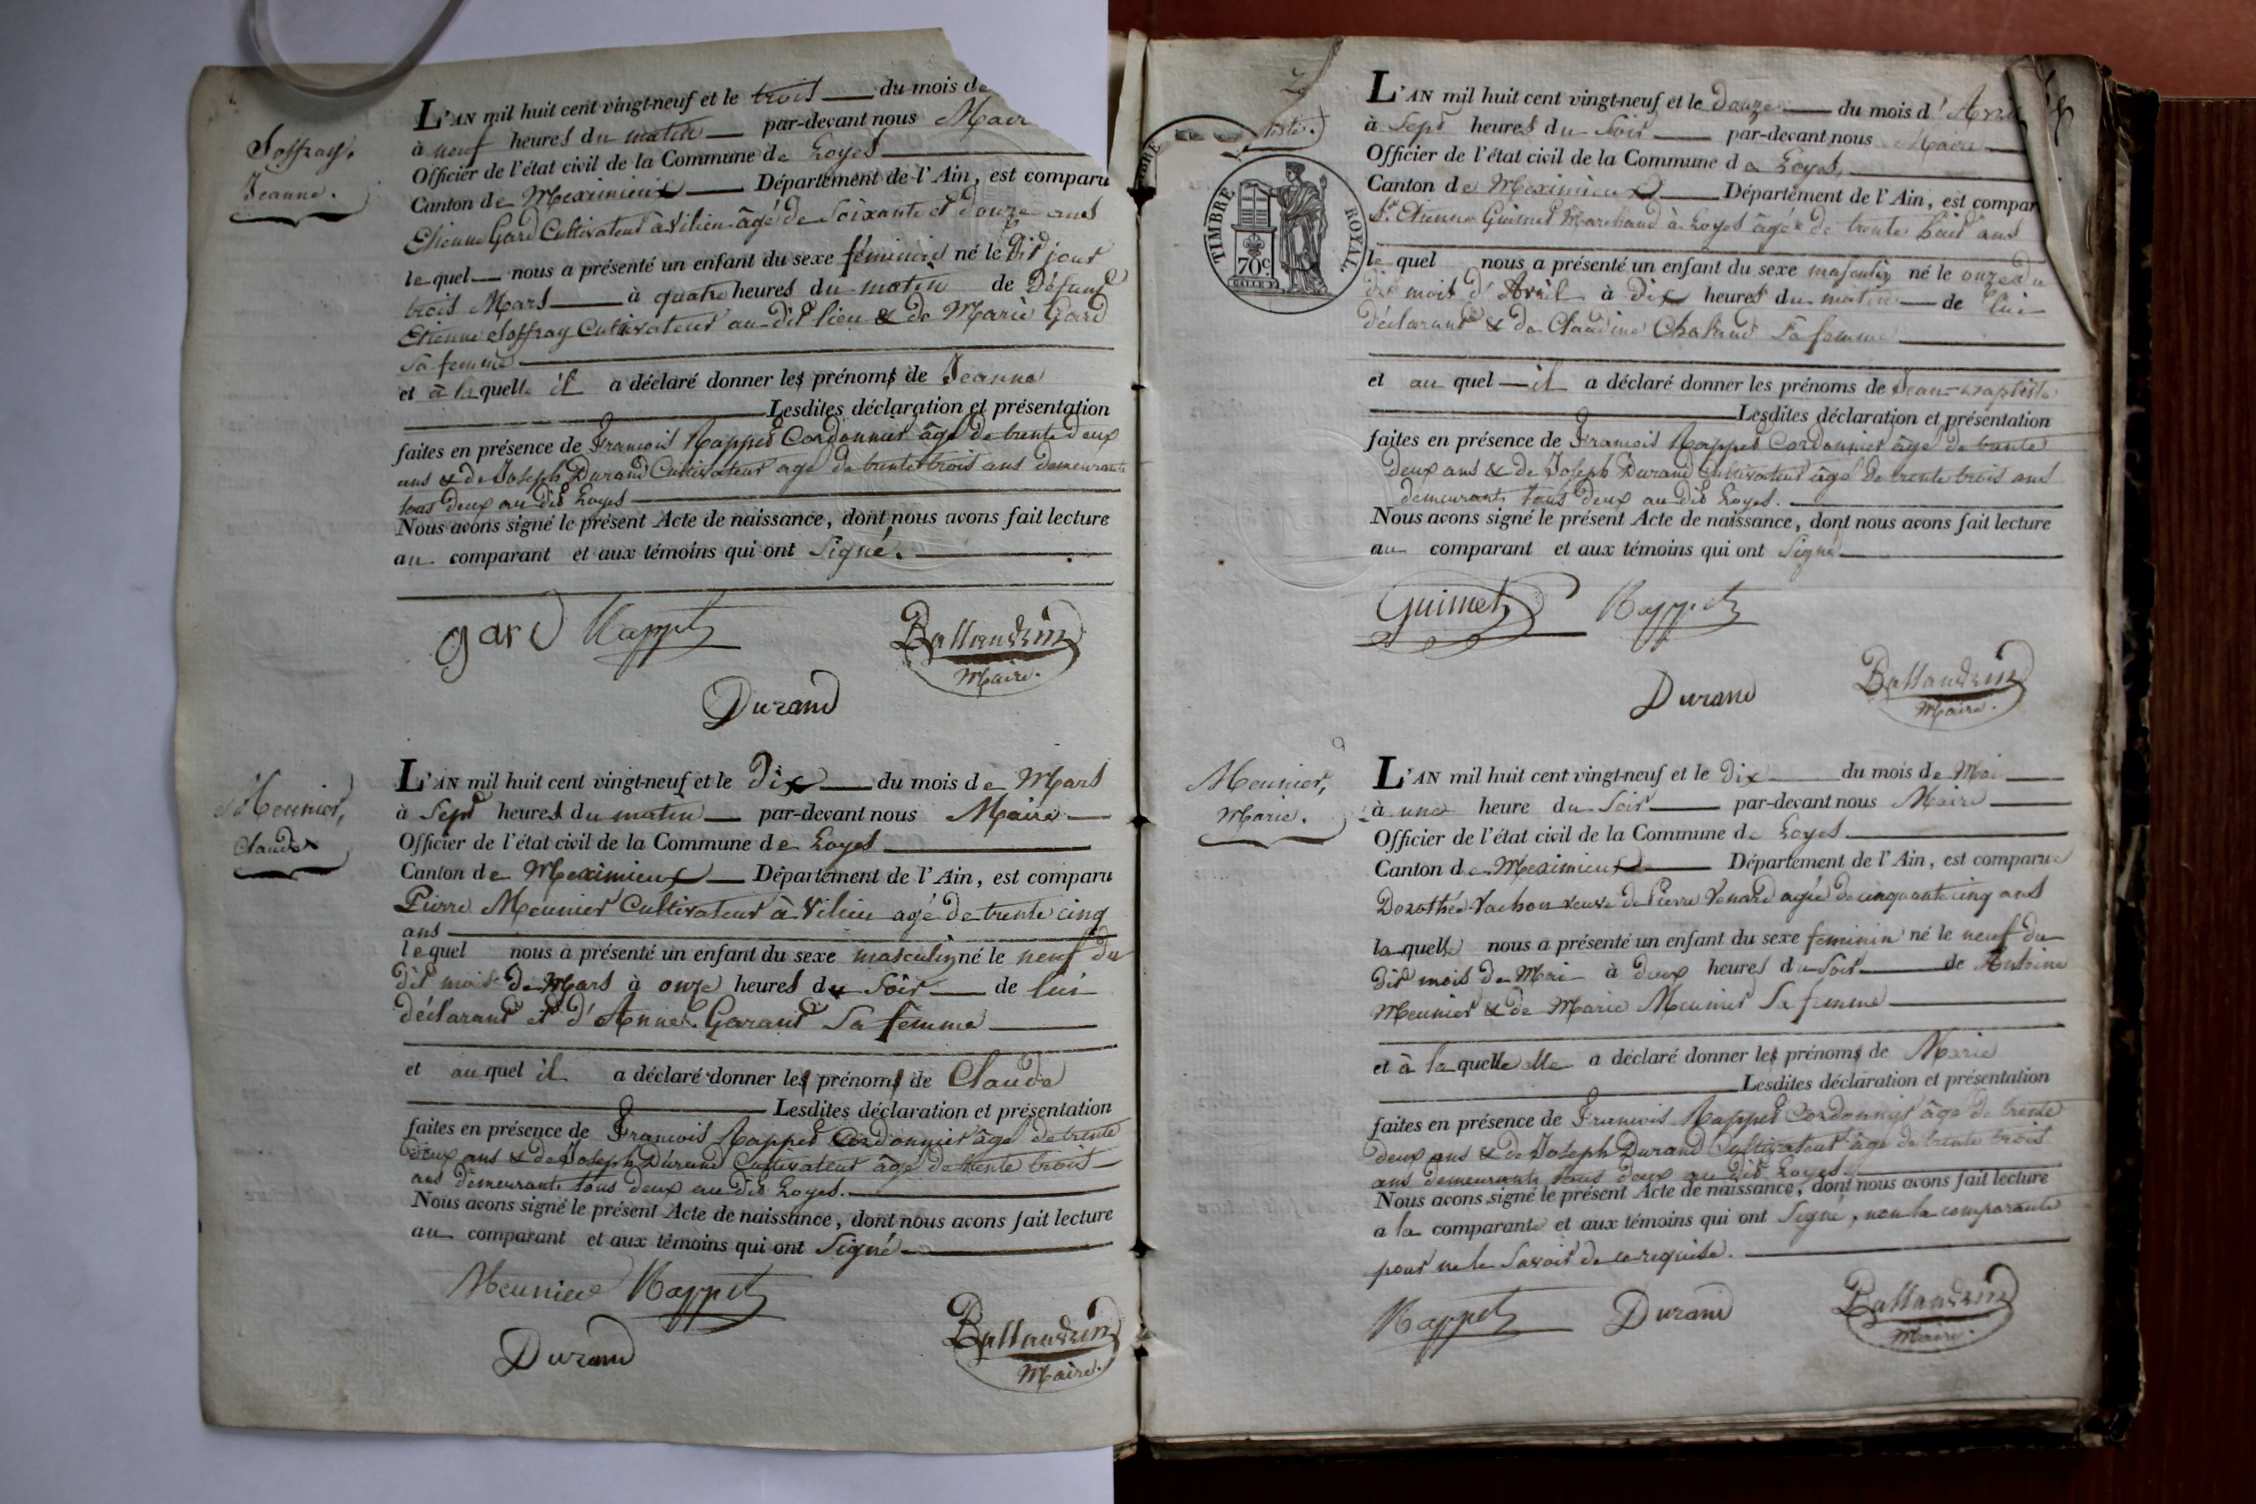 Soffray,
Jeanne.
L'AN mil huit cent vingt-neuf et le trois du mois de
à neuf heures du matin par-devant nous Mair
Officier de l'état civil de la Commune de Loyes
Canton de Meximieux Département de l'Ain, est comparu
Etienne Gard Cultivateur à Vilieu âgé de Soixante et douze ans
lequel nous a présenté un enfant du sexe féminin né le dit jour
trois Mars à quatre heures du matin de Défunt
Etienne Soffray Cultivateur au dit lieu & de Marie Gard
Sa femme
et à laquelle il a déclaré donner les prénoms de Jeanne
Lesdites déclaration et présentation
faites en présence de François Rappet Cordonnier âgé de trente deux
ans & de Joseph Durand Cultivateur âgé de trente trois ans demeurants
tous deux au dit Loyes
Nous avons signé le présent Acte de naissance, dont nous avons fait lecture
au comparant et aux témoins qui ont Signé.
gard Rappet
Ballandrin
Maire.
Durand
Meunier,
Claude
L'AN mil huit cent vingt-neuf et le Dix du mois de Mars
à Sept heures du matin par-devant nous Maire
Officier de l'état civil de la Commune de Loyes
Canton de Meximieux Département de l'Ain, est comparu
Pierre Meunier Cultivateur à Vilieu agé de trente cinq
ans
lequel nous a présenté un enfant du sexe masculin né le neuf du
dit mois de Mars à onze heures du Soir de lui
déclarant et d'Anne Garant Sa femme
et auquel il a déclaré donner les prénoms de Claude
Lesdites déclaration et présentation
faites en présence de François Rappet Cordonnier âgé de trente
deux ans & de Joseph Durand Cultivateur âgé de trente trois
ans demeurants tous deux au dit Loyes.
Nous avons signé le présent Acte de naissance, dont nous avons fait lecture
au comparant et aux témoins qui ont Signé
Meunier Rappet
Durand
Ballandrin
Maire.
TIMBRE ROYAL
70c
L'AN mil huit cent vingt-neuf et le Douze du mois d'Avri
à Sept heures du Soir par-devant nous Maire
Officier de l'état civil de la Commune de Loyes
Canton de Meximieux Département de l'Ain, est compar
Sr. Etienne Guimet Marchand à Loyes âgé de trente huit ans
lequel nous a présenté un enfant du sexe masculin né le onze du
dit mois d'Avril à Dix heures du matin de lui
déclarant & de Claudine Sa femme
et auquel il a déclaré donner les prénoms de Jean-Baptiste
Lesdites déclaration et présentation
faites en présence de François Rappet Cordonnier âgé de trente
deux ans & de Joseph Durand Cultivateur âgé de trente trois ans
demeurants tous deux au dit Loyes.
Nous avons signé le présent Acte de naissance, dont nous avons fait lecture
au comparant et aux témoins qui ont Signé
Guimet Rappet
Durand
Ballandrin
Maire.
Meunier,
Marie.
L'AN mil huit cent vingt-neuf et le dix du mois de Mai
à une heure du Soir par-devant nous Maire
Officier de l'état civil de la Commune de Loyes
Canton de Meximieux Département de l'Ain, est comparue
Dorothée Vachon veuve de Pierre Venard agée de cinquante cinq ans
laquelle nous a présenté un enfant du sexe feminin né le neuf du
dit mois de Mai à deux heures du Soir de Antoine
Meunier & de Marie Meunier Sa femme
et à laquelle elle a déclaré donner les prénoms de Marie
Lesdites déclaration et présentation
faites en présence de François Rappet Cordonnier âgé de trente
deux ans & de Joseph Durand Cultivateur âgé de trente trois
ans demeurants tous deux au dit Loyes
Nous avons signé le présent Acte de naissance, dont nous avons fait lecture
a la comparante et aux témoins qui ont Signé, non la comparante
pour ne le Savoir de ce requise.
Rappet Durand
Ballandrin
Maire.